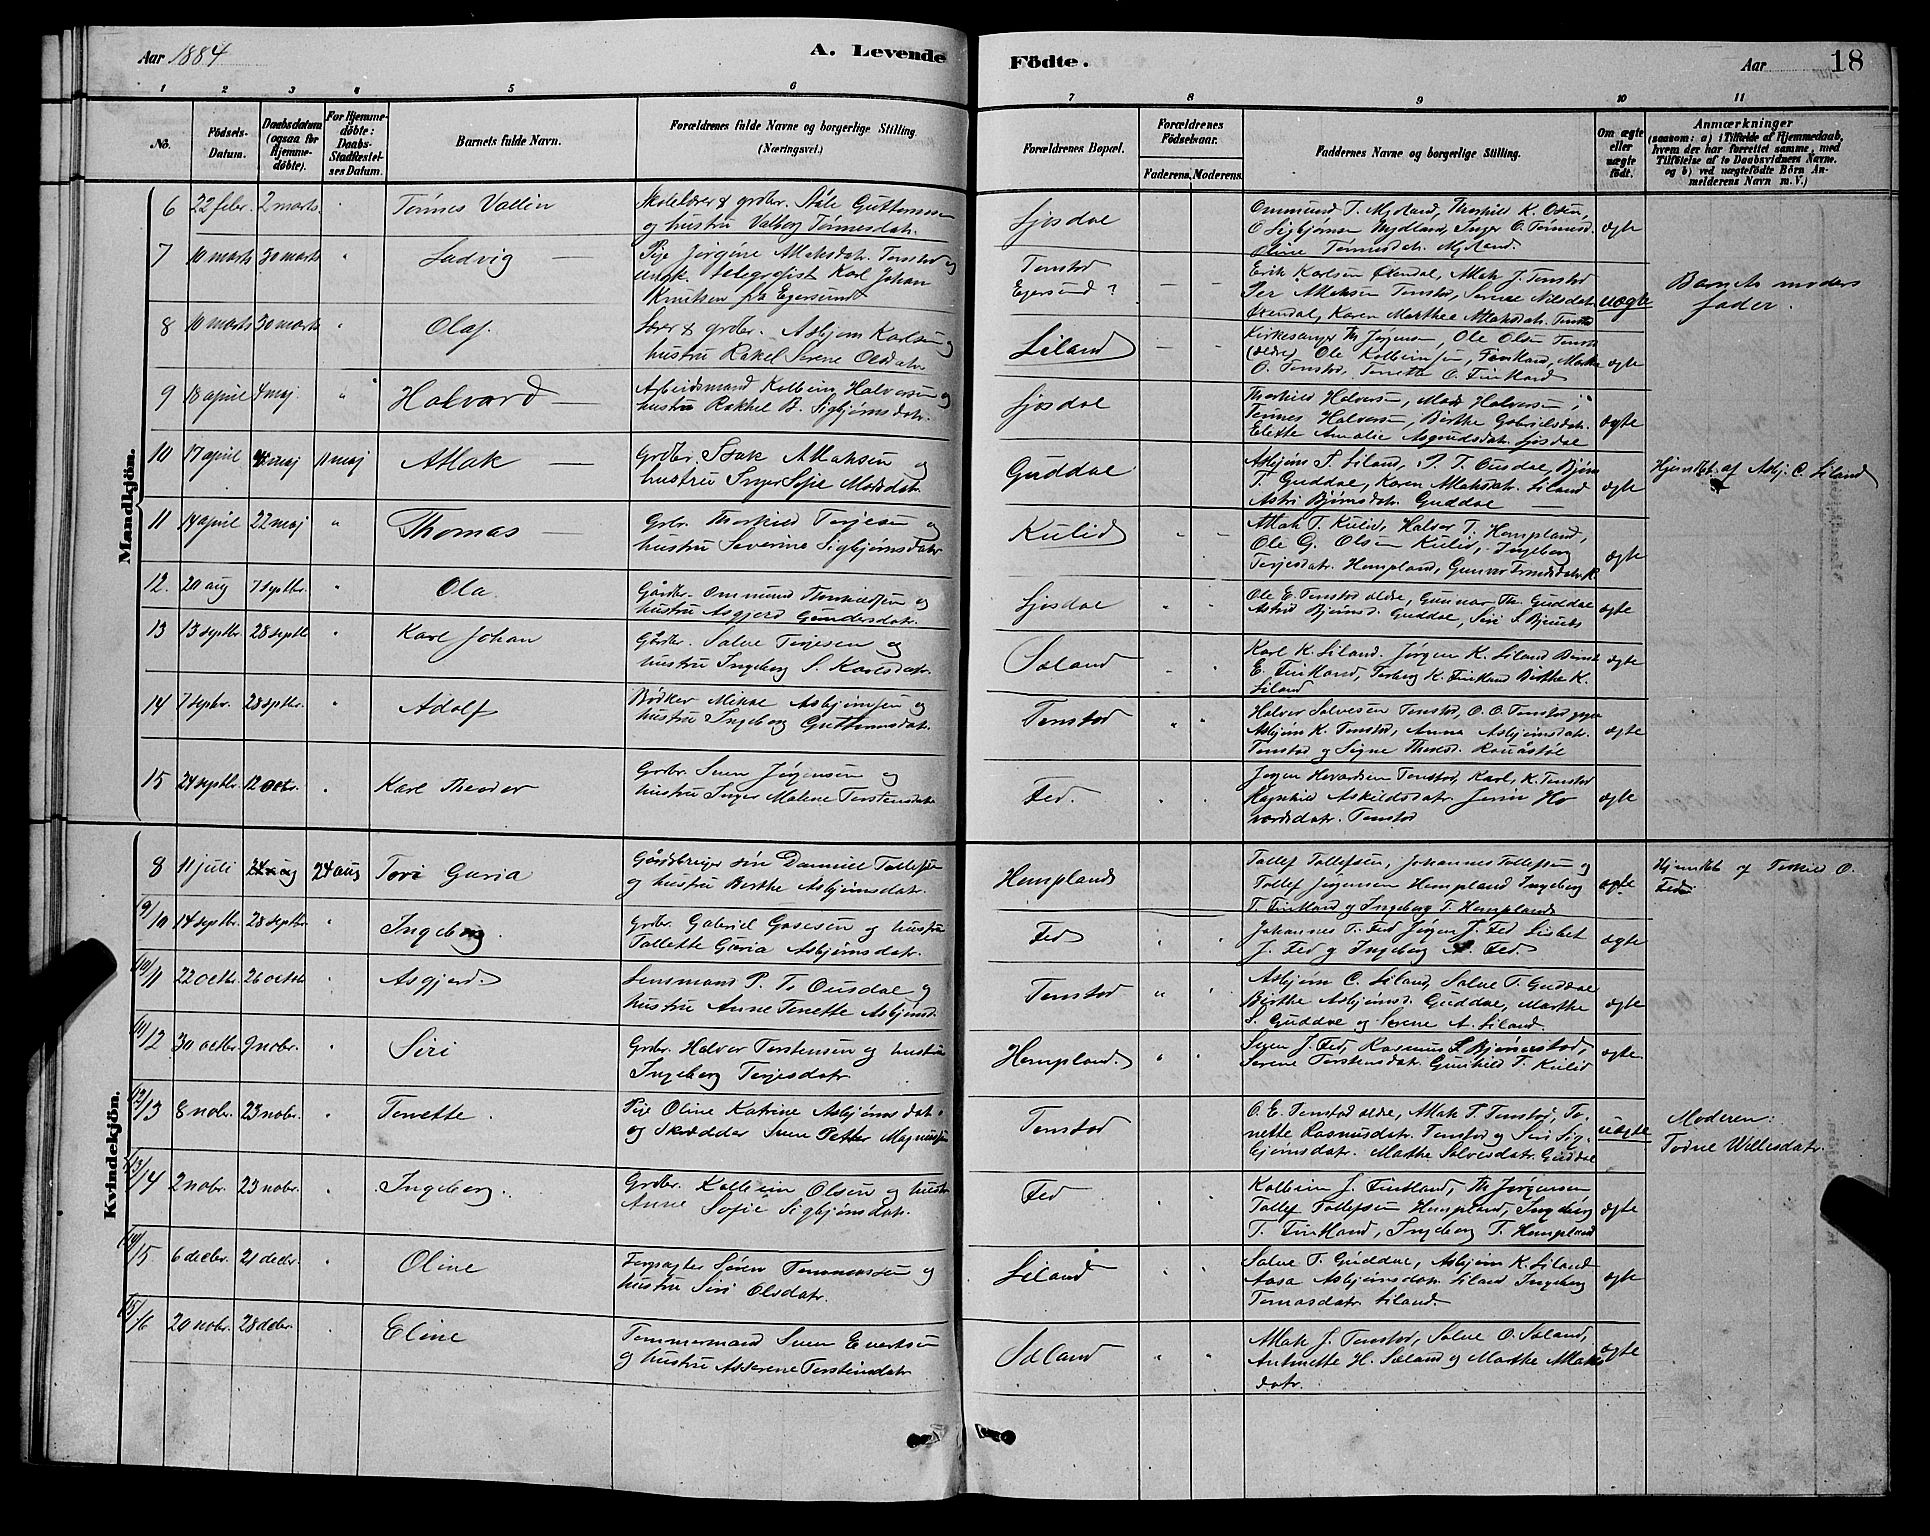 Aar 1884
A. Levende
Födte.
Aar
18
1 2 3 4 5 6
7 8 9 10 11
No.
Födsels-Datum.
Daabsdatum (ogsaa for Hjemme-döbte).
For Hjemme-döbte: Daabs-Stadfæstel-ses Datum.
Barnets fulde Navn.
Forældrenes fulde Navne og borgerlige Stilling.
(Næringsvei.)
Forældrenes Bopæl.
Forældrenes Födselsaar.
Faderens. Moderens.
Faddernes Navne og borgerlige Stilling.
Om ægte eller uægte födt.
Anmærkninger
(saasom: a) i Tilfælde af Hjemmedaab, hvem der har forrettet samme, med Tilföielse af to Daabsvidners Navne. og b) ved uægtefödte Börn Anmelderens Navn m. V.)
Mandkjön.
6 22 febr. 2 marts " Tönnes Vallin
Skolelærer & grdbr. Ståle Guttormsen
og hustru Valborg Tönnesdatr.
Ljosdal
Ommund T. Mydland, Thorkild K. Osen,
O Sigbjørnsen Mydland, Inger O. Tønnesd.
Oline Tønnesdatr. Mydland
ægte
7 10 marts 30 marts " Ludvig
Pige Jørgine Atlaksdatr. Tonstad og
ungk. telegrafist Karl Johan
Knutsen fra Egersund
Tonstad
Egersund?
Erik Karlsen Øxendal, Atlak J. Tonstad
Per Atlaksen Tonstad, Serene Nilsdatr.
Øxendal, Karen Marthea Atlaksdatr. Tonstad
uægte
Barnets moders
fader.
8 10 marts 30 marts " Olaf.
Lærer & grdbr. Asbjørn Karlsen og
hustru Rakel Serene Olsdatr
Liland
Kirkesanger Th Jørgensen, Ole Olsen Tonstad
(ældre) Ole Kolbeinsen, Finkland, Marthe
O. Tonstad, Tonette O. Fintland
ægte
9 18 april 4 maj " Halvard
Arbeidsmand Kolbein Halvorsen og
hustru Rakhel B. Sigbjørnsdatr.
Ljosdal
Thorkild Halvorsen, Mads Halvorsen,
Tønnes Halvorsen, Birthe Gabrielsdatr.
Elette Amalie Asgrudsdatr. Ljosdal
ægte
10 17 april 4 maj 11 maj Atlak
Grdbr. Isak Atlaksen og
hustru Inger Sofie Madsdatr.
Guddal
Asbjørn S. Liland, P. T. Ousdal, Bjørn
T. Guddal, Karen Atlaksdatr. Liland
Astri Bjørnsdatr. Guddal
ægte
Hjemdbt. af Asbj. C. Liland
11 14 april 22 maj " Thomas
Grbr. Thorkild Terjesen og
hustru Severine Sigbjørnsdatr
Kulid
Atlak T. Kulid, Halvor T. Hompland,
Ole G. Olsen Kulid, Ingeborg
Terjesdatr. Hompland, Gunvor Trondsdatr. K
ægte
12. 20 aug 7 septbr. " Ola
Gårdbr. Ommund Thorkildsen og
hustru Asgjerd Gundersdatr.
Ljosdal
Ole E. Tonstad ældre, Gunnar Th. Guddal
Astrid Bjørnsd. Guddal, Siri S. Bjunes
ægte
13 13 septbr. 28 septbr " Karl Johan
Gårdbr. Salve Terjesen og
hustru Ingeborg S. Karlsdatr.
Sæland
Karl K. Liland. Jørgen K. Liland Bernt
E. Fintland, Torborg K. Fintland Birthe K.
Liland
ægte
14 7 septbr. 28 septbr. " Adolf
Bødker Mikal Asbjørnsen og
hustru Ingeborg Guttormsdatr.
Tonstad
Halvor Salvesen Tonstad, O. O. Tonstad yngre
Asbjørn K. Tonstad, Anna Asbjørnsdatr.
Tonstad og Signe Thoresd. Rouåstøl
ægte
15 24 septbr. 12 octbr. " Karl Theodor
Grbr. Sven Jørgensen og
hustru Inger Malene Torstensdatr
Fed.
Jørgen Hovardsen Tonstad, Karl, K. Tonstad
Ragnhild Askildsdatr. Jorin Ho
vardsdatr. Tonstad
ægte
Kvindekjön.
8 11 juli 24 aug 24 aug Tori Guria
Gårdsbruger søn Danniel Tollefsen
og hustru Berthe Asbjørnsdatr.
Hompland
Tollef Tollefsen, Johannes Tollefsen og
Tollef Jørgensen Hompland Ingeborg
T. Fintland og Ingeborg T. Hompland
ægte
Hjemdbt af Torkild O.
Fed.
9/10 14 septbr. 28 septbr " Ingeborg.
Grbr. Gabriel Gosesen og hustru
Tollette Guria Asbjørnsdatr.
Fed
Johannes T. Fed Jørgen J. Fed Lisbet
J. Fed og Ingeborg A. Fed.
ægte
10/11 22 octbr. 26 octobr " Asgjerd.
Lensmand P. T. Ousdal og
hustru Anne Tonette Asbjørnsd.
Tonstad
Asbjørn C. Liland, Salve T. Guddal
Birthe Asbjørnsd. Guddal, Marthe
S. Guddal og Serene A. Liland.
ægte
11/12 30 octbr. 9 nobr. " Siri
Grbr. Halvor Torstensen og hustru
Ingeborg Terjesdatr
Hompland.
Sven J. Fed, Rasmus S. Bjørnestad,
Serene Torstensdatr. Gunhild T. Kulid
ægte.
12/13 8 nobr. 23 nobr. " Tonette.
Pige Oline Katrine Asbjørns dat.
og Skrædder Sven Petter Magnussen
Tonstad
O. E. Tonstad ældre, Atlak T. Tonstad, To-
nette Rasmusdatr. Tonstad og Siri Sig-
bjørnsdatr. Marthe Salvesdatr. Guddal
uægte
Moderen:
Todne Willesdatr.
13/14 2 nobr. 23 nobr. " Ingeborg.
Grdbr. Kolbein Olsen og hustr
Anne Sofie Sigbjørnsdatr.
Fed
Kolbein J. Fintland, Th Jørgensen
Tollef Tollefsen Hompland, Ingeborg
T. Fintland, Ingeborg T. Hompland
ægte
14/15 6 decbr. 21 decbr. " Oline
Forpagter Søren Tommassen og
hustru Siri Olsdatr.
Liland
Salve T. Guddal, Asbjørn K. Liland
Aasa Asbjørnsdatr. Liland Ingeborg
Tomasdatr. Liland.
ægte
15/16 20 nobr. 28 debr. " Eline
Tømmermand Sven Evertsen
og hustru Asserene Torsteinsdatr
Sæland
Atlak J. Tonstad, Salve O. Sæland,
Antonette H. Sæland og Marthe Atlaks
datr.
ægte